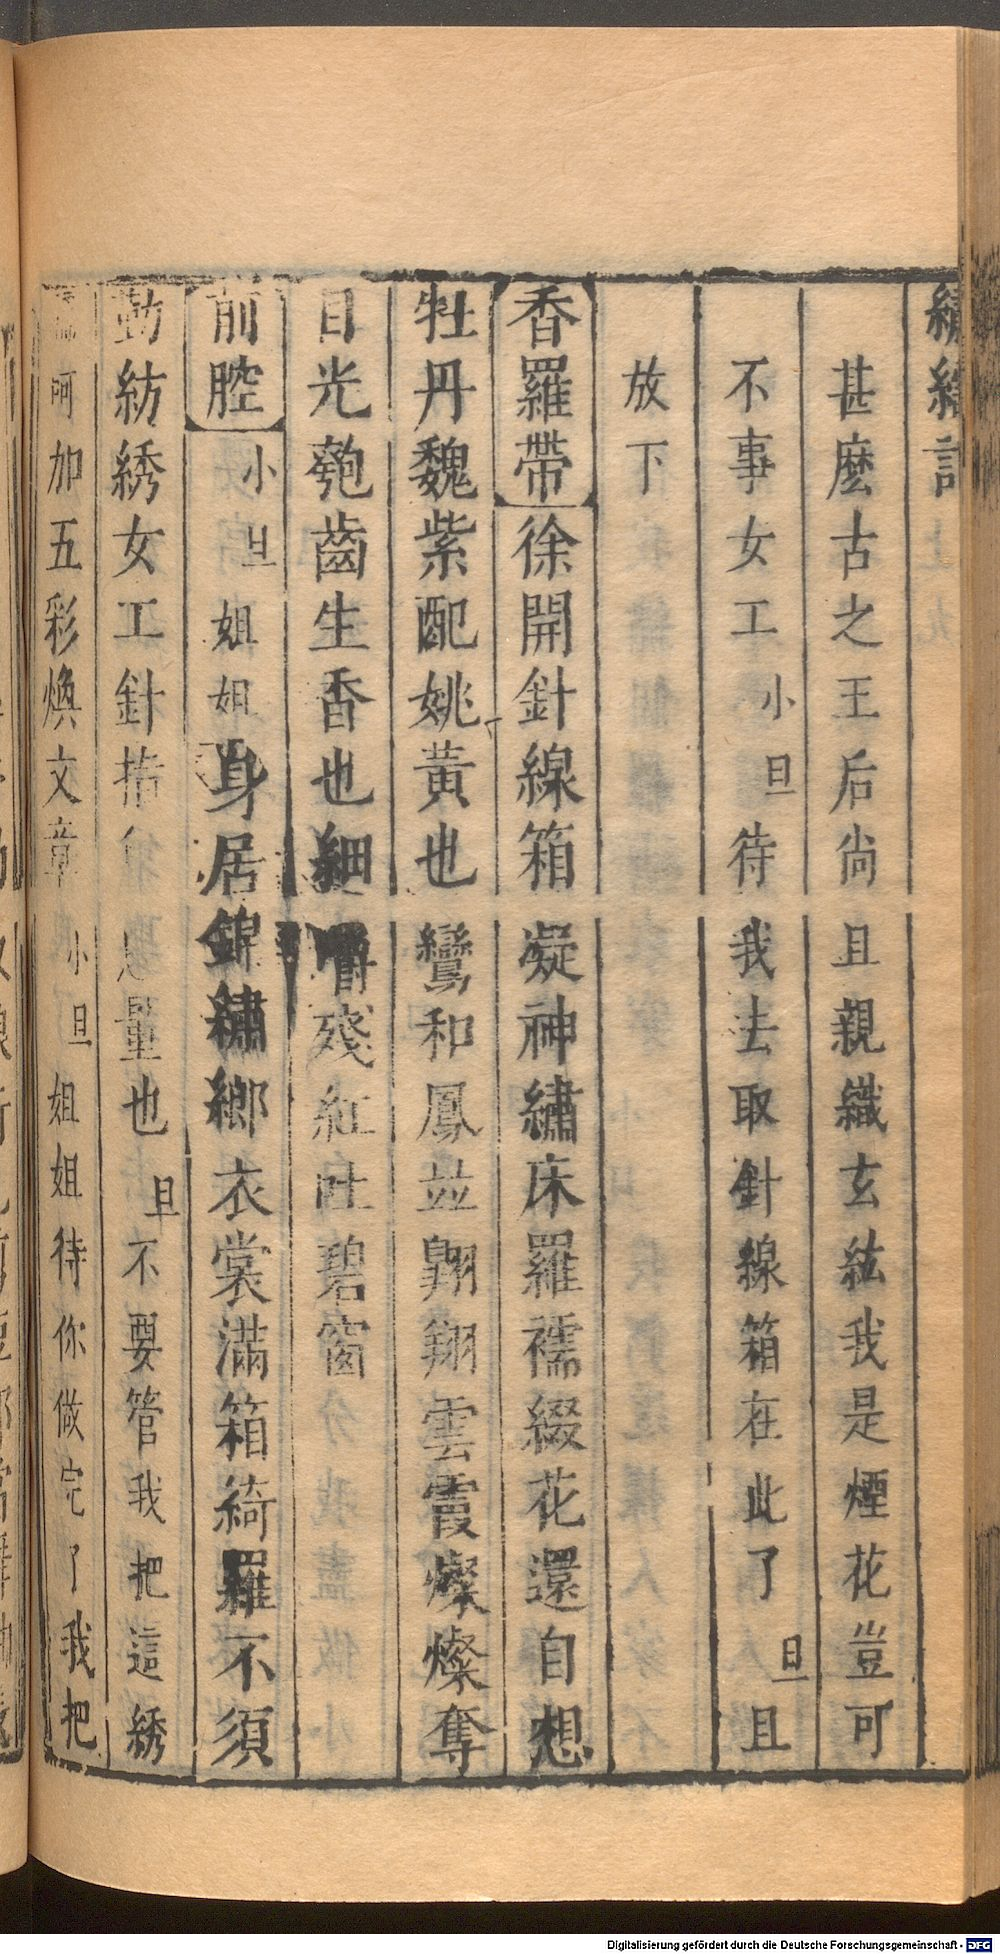 繡繻記
甚麽古之王后尚且親織玄紘我是煙花豈可
不事女工小旦待我去取針線箱在此了旦且
放下
香羅帶徐開針線箱凝神繡床羅襦綴花還自想
牡丹魏紫配姚黃也鸞和鳳並翱翔雲霞燦燦奪
目光匏齒生香也細嚼殘紅吐碧窗
前腔小旦姐姐身居錦繡鄉衣裳滿箱綺羅不須
勤紡綉女工針指量也旦不要管我把這綉
呵加五彩煥文章小旦姐姐待你做完了我把
Digitalisierung gefördert durch die Deutsche Forschungsgemeinschaft - DFG